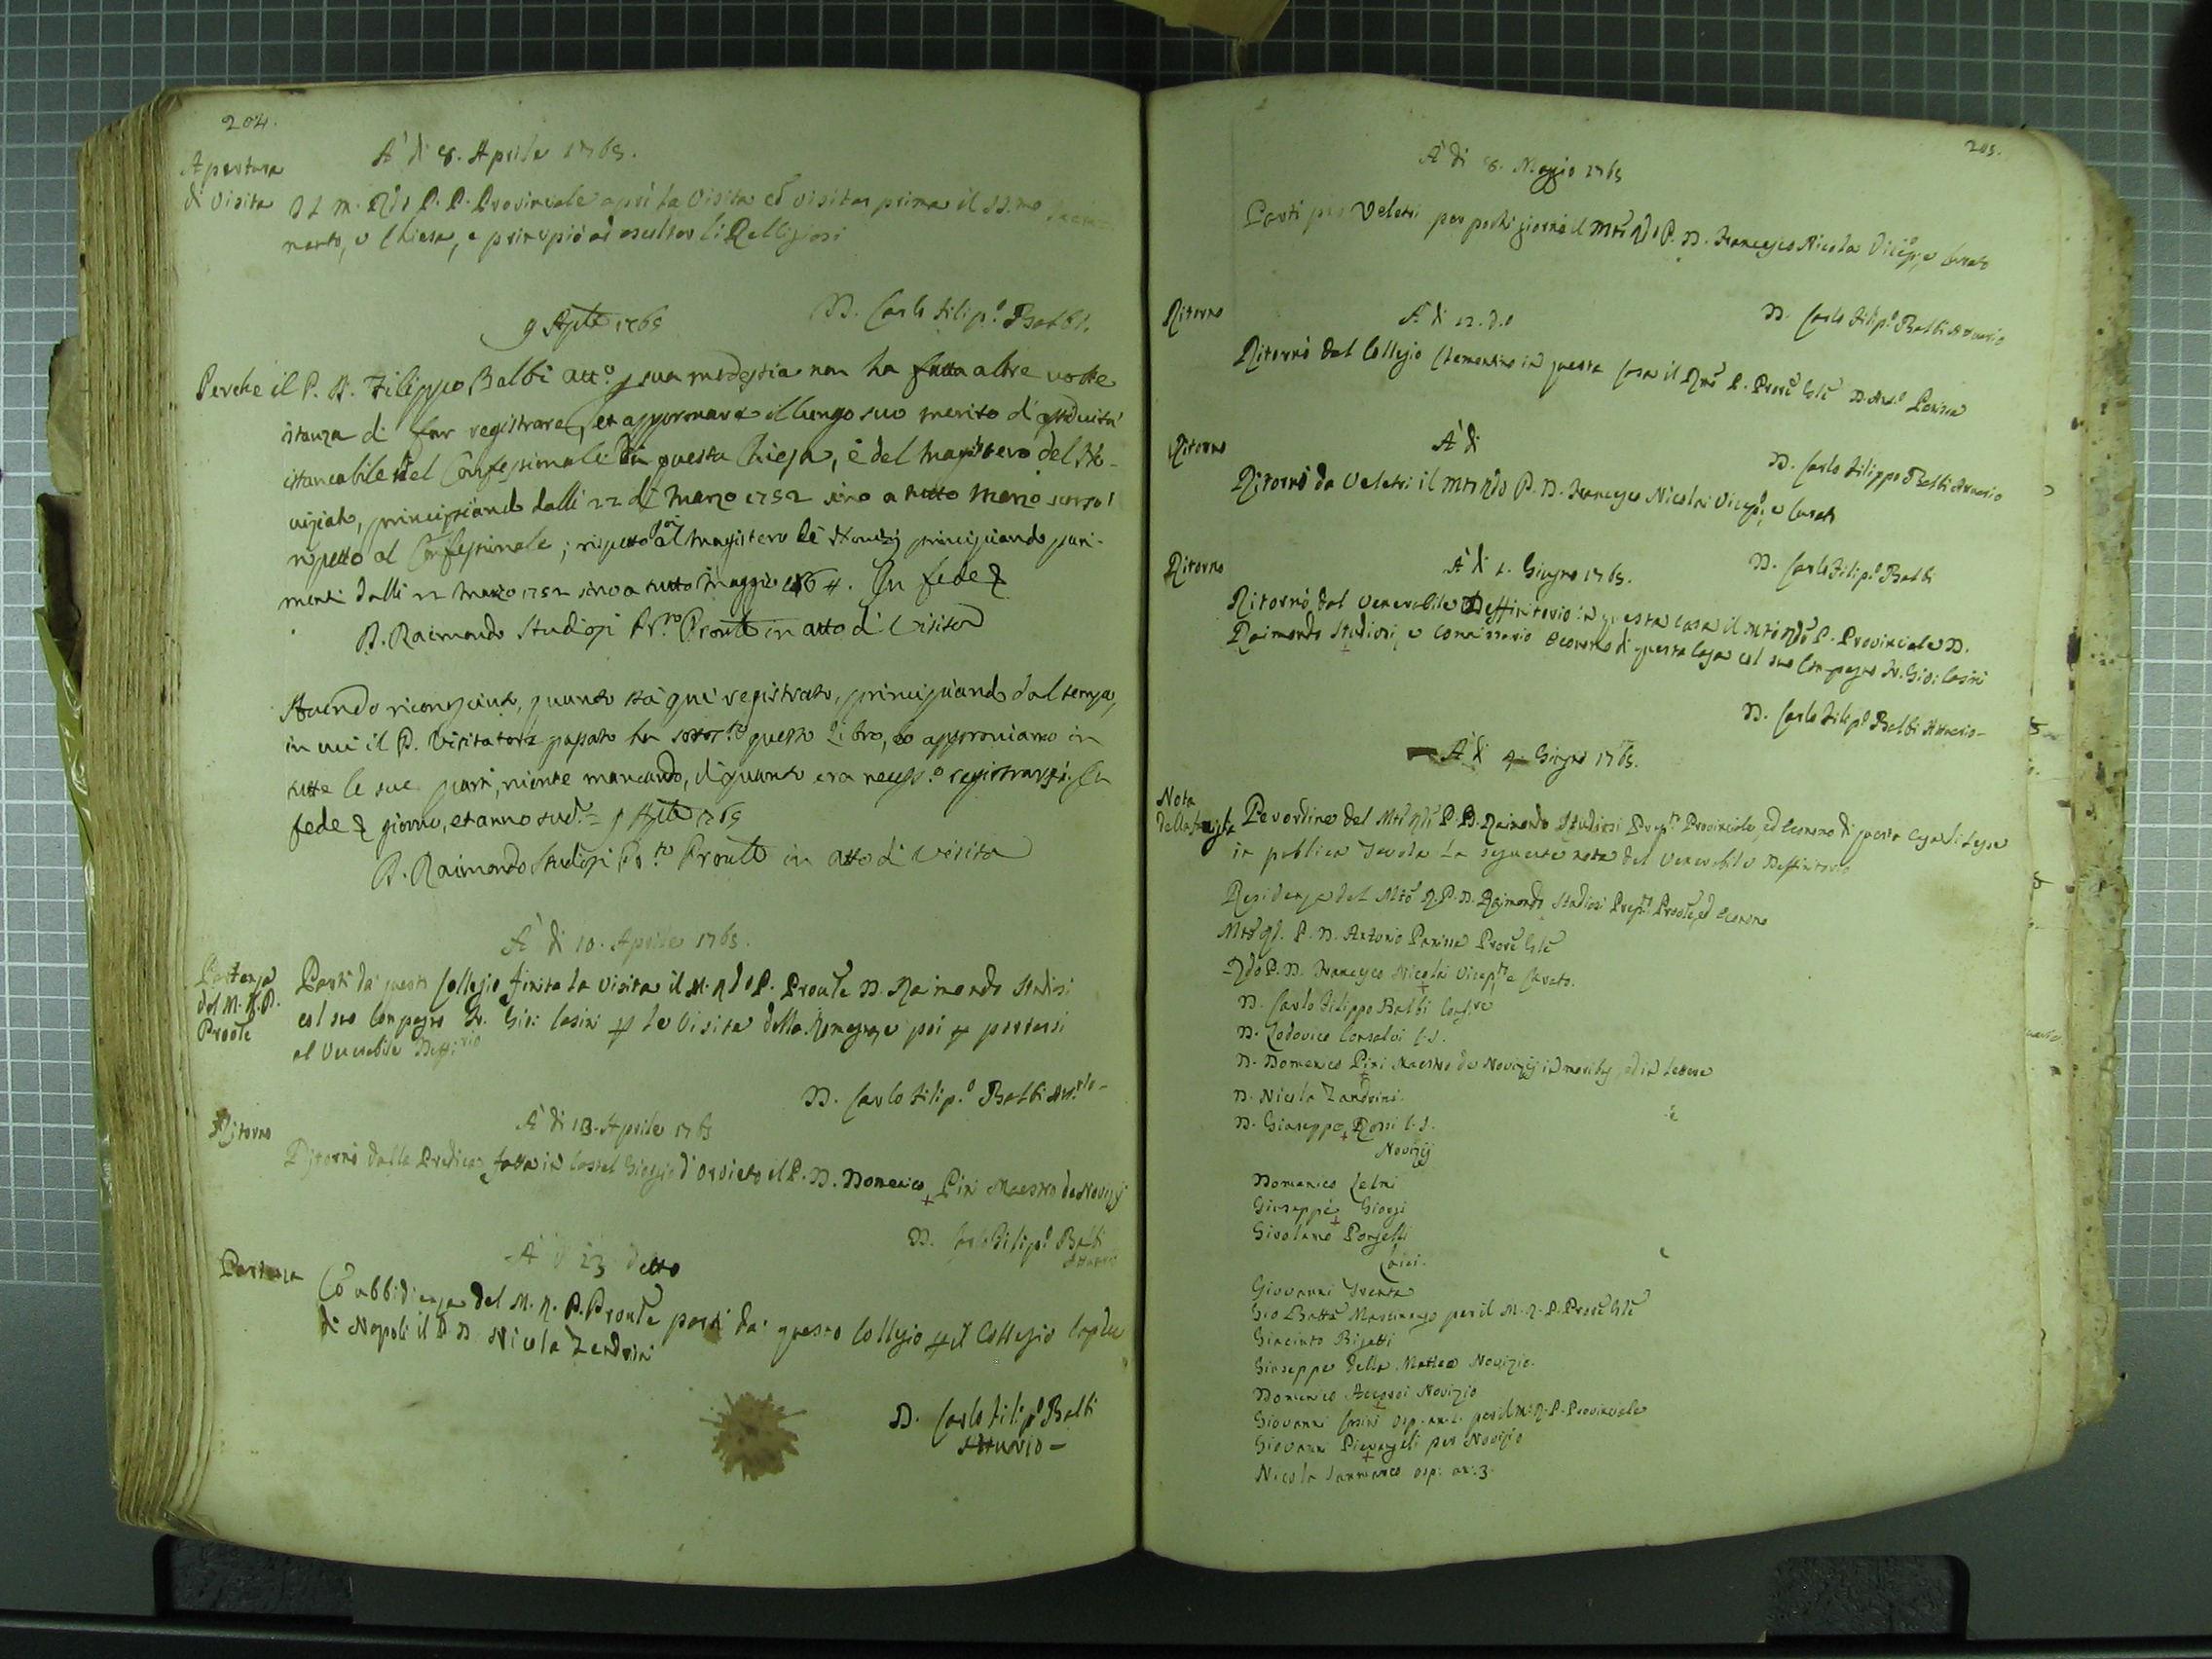 204.
A' di 8. Aprile 1765.
Apertura
di Visita
Il M. Rdo P. P. Provinciale aprì la Visita ed visitar prima il SS.mo Sacra-
mento, e Chiesa, e principiò ad escultar li Relligiosi
D. Carlo Filip.o Balbi.
9 Aple 1765
Perche il P. D. Filippo Balbi att.o p sua modestia non ha fatta altre volte
istanza di far registrare, et approvare il lungo suo merito d'assiduità
istancabile nel Confessionale in questa Chiesa, è del magistero del No-
viziato, principiando dalli 22 di Marzo 1752 sino a tutto Marzo scorso
rispetto al Confessionale; rispetto poi al magistero de Novizj principiando pari-
menti dalli 22 Marzo 1752 sino a tutto Maggio 1764. In fede &
D. Raimondo Studiosi Pr.to Pronle in atto di Visita
Havendo riconosciuto, quanto stà qui registrato, principiando dal tempo,
in cui il P. Visitatore passato ha sotto questo Libro, lo approviamo in
tutte le sue parti, niente mancando, di quanto era necess.o registrarsi. In
fede & giorno, et anno sud.o = 9 Aple 1765
D. Raimondo Studiosi Ps.to Pronle in atto di Visita
A' di 10. Aprile 1765.
Partenza
del M. R. P.
Pronle
Partì da questo Collegio finita la Visita il M. Rdo P. Pronle D. Raimondo Studiosi
col suo Compagno Fr. Gio: Casini p la Visita della Romagna e poi p portarsi
al Venerabile Deffi.rio
D. Carlo Filip.o Balbi Att.rio-
A' di 13. Aprile 1765
Ritorno
Ritornò dalla Predica fatta in Castel Giorgio d'Orvieto il P. D. Domenico Pini Maestro de Novizij
D. Carlo Filip.o Balbi
Attuario
A' di 23 detto
Partenza
Co ubbidienza del M. R. P. Pronle partì da questo Collegio p il Collegio Caplu
di Napoli il P. D. Nicola Zandrini
D. Carlo Filip.o Balbi
Attuario-
205.
A' di 8. Maggio 1765
Partì per Veletri per pochi giorni il Mto Rdo P. D. Francesco Nicola Vicep., e Curato
D. Carlo Filip.o Balbi Attuario
Ritorno
A' di 12. d.o
Ritornò dal Collegio Clementino in questa Casa il Rmo P. Prore Gle D. Ant.o Panissa
D. Carlo Filippo Balbi Attuario
Ritorno
A' di
Ritornò da Veletri il Mto Rdo P. D. Francesco Nicolai Vicep., e Curato
D. Carlo Filip.o Balbi
Ritorno
A' di 1. Giugno 1765.
Ritornò dal Venerabile Deffinitorio in questa casa il Mto Rdo P. Provinciale D.
Raimondo Studiosi, e Comissario Economo di questa Casa col suo Compagno Fr. Gio: Casini
D. Carlo Filip.o Balbi Attuario-
A' di 4 Giugno 1765.
Nota
della famiglia
Per ordine del Mto Rdo P. D. Raimondo Studiosi Prep.to Provinciale, ed Economo di questa Casa si lesse
in publica Tavola la seguente nota del Venerabile Deffinitorio
Residenza del Mto R. P. D. Raimondo Studiosi Prep.to Pronle, ed Economo
Mto R. P. D. Antonio Panissa Prore Gle
Rdo P. D. Francesco Nicolai Vicep.to e Curato.
D. Carlo Filippo Balbi Conf.re
D. Lodovico Consalvi C.S.
D. Domenico Pini Maestro de Novizij in moribus, ed in lettere
D. Nicola Zandrini.
D. Giuseppe Rossi C.S.
Novizij
Domenico Celmi
Giuseppe Giorgi
Girolamo Porzelli
Laici.
Giovanni Trenta
Gio Batta Marcinengo per il M. R. P. Prore Gle
Giacinto Bigatti
Giuseppe della Mattea Novizio.
Domenico Novizio
Giovanni Casini Osp. an. 2. per il M. R. P. Provinciale
Giovanni Pierangeli per Novizio
Nicola Sanmarco osp: an: 3.